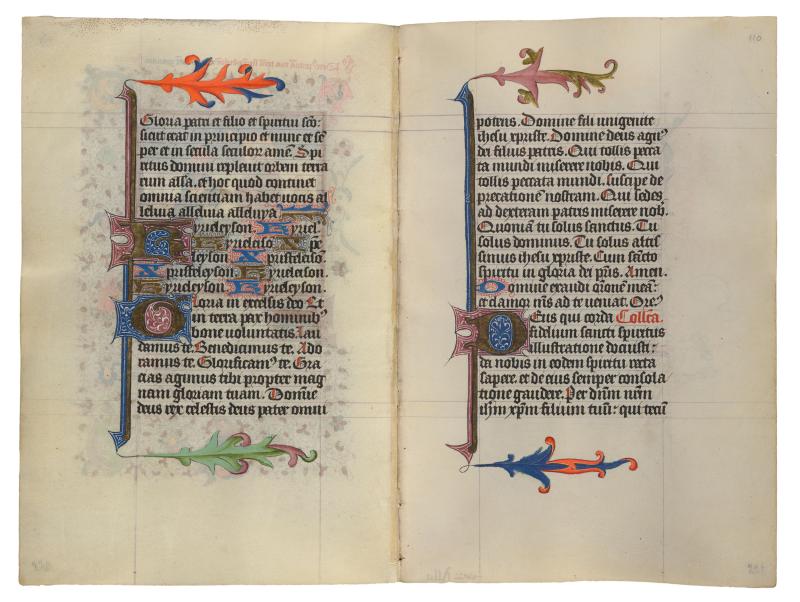 Gloria patri et filio et spiritui sco:
sicut erat in principio et nunc et se
per et in secula seculor ame. Spi
ritus domini repleuit orbem terra
rum alla. et hoc quod continet
omnia scientiam habet uocis al
leluia alleluia alleluya.
Kyrieleyson. Kyriel.
eyson. Kyrieleiso. Xpe
leyson. Xpisteleiso.
Xpisteleyson. Kyrieleison.
Kyrieleyson. Kyrieleyson.
Gloria in excelsis deo Et
in terra pax hominib
bone voluntatis. Lau
damus te. Benedicimus te. Ado
ramus te. Glorificam te. Gra
cias agimus tibi propter mag
nam gloriam tuam. Domie
deus rex celestis deus pater omni
110
potens. Domine fili unigenite
ihesu xpriste. Domine deus agn
dei filius patris. Qui tollis pecca
ta mundi miserere nobis. Qui
tollis peccata mundi. suscipe de
precatione nostram. Qui sedes
ad dexteram patris miserere nob.
Quonia tu solus sanctus. Tu
solus dominus. Tu solus altis
simus ihesu xpriste. Cum sancto
spiritu in gloria dei pris. Amen.
Domine exaudi orone mea:
et clamor ms ad te ueniat. Ore
Deus qui corda Collca.
fidelium sancti spiritus
illustratione docuisti:
da nobis in eodem spiritu recta
sapere. et de eius semper consola
tione gaudere. Per dnm nrm
ihm xpm filium tuu: qui tecu